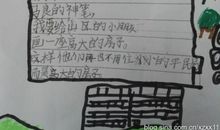 马良的神笔
我要给山区的小朋友
画一座高大的房子
这样他们再也不用住我的平民
而是高大的房子
blog.sina.com.cn/xzxx11